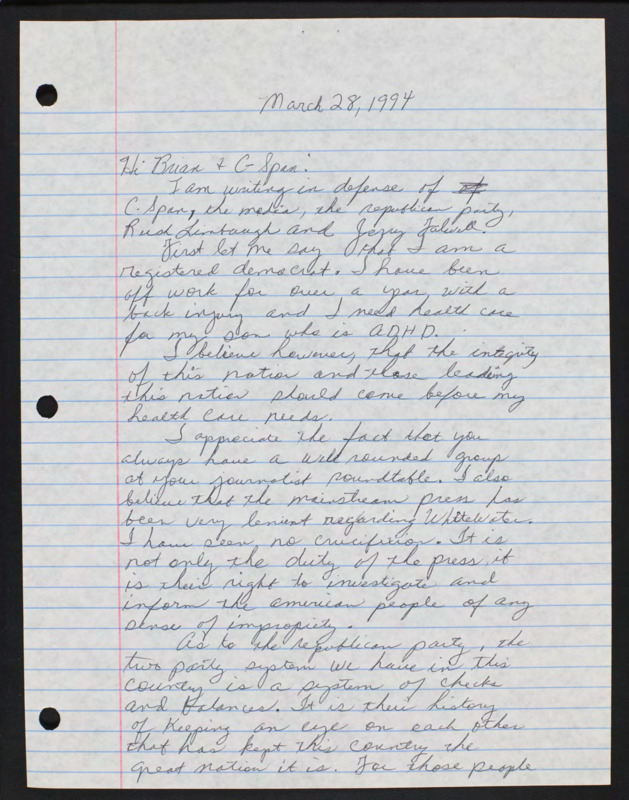 March 28, 1994
Hi Brian & C-Span:
I am writing in defense of
C-Span, the media, the republican party,
Rush Limbaugh and Jerry Falwell.
First let me say that I am a
registered democrat. I have been
off work for over a year with a
back injury and I need health care
for my son who is ADHD.
I believe however, that the integrity
of this nation and those leading
this nation should come before my
health care needs.
I appreciate the fact that you
always have a well rounded group
at your journalist roundtable. I also
believe that the mainstream press has
been very lenient regarding Whitewater.
I have seen no crucifixion. It is
not only the duty of the press, it
is their right to investigate and
inform the american people of any
sense of impropiety.
As to the republican party, the
two party system we have in this
country is a system of checks
and balances. It is their history
of keeping an eye on each other
that has kept this country the
great nation it is. For those people